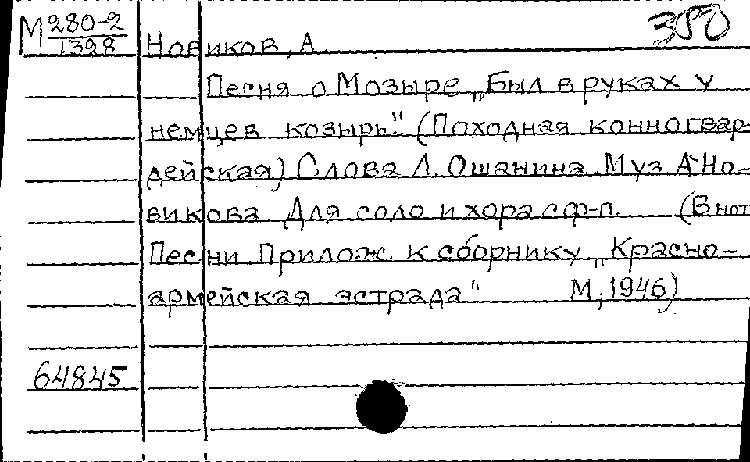 М 280-2 350
1398 Новиков, А.
Песня о Мозыре „Был в руках у
немцев козырь" (Походная конногвар-
дейская) Слова Л. Ошанина Муз А. Но-
викова Для соло и хора с ф-п. (В нот
Песни Прилож. к сборнику „Красно-
армейская эстрада" М, 1946)
64845